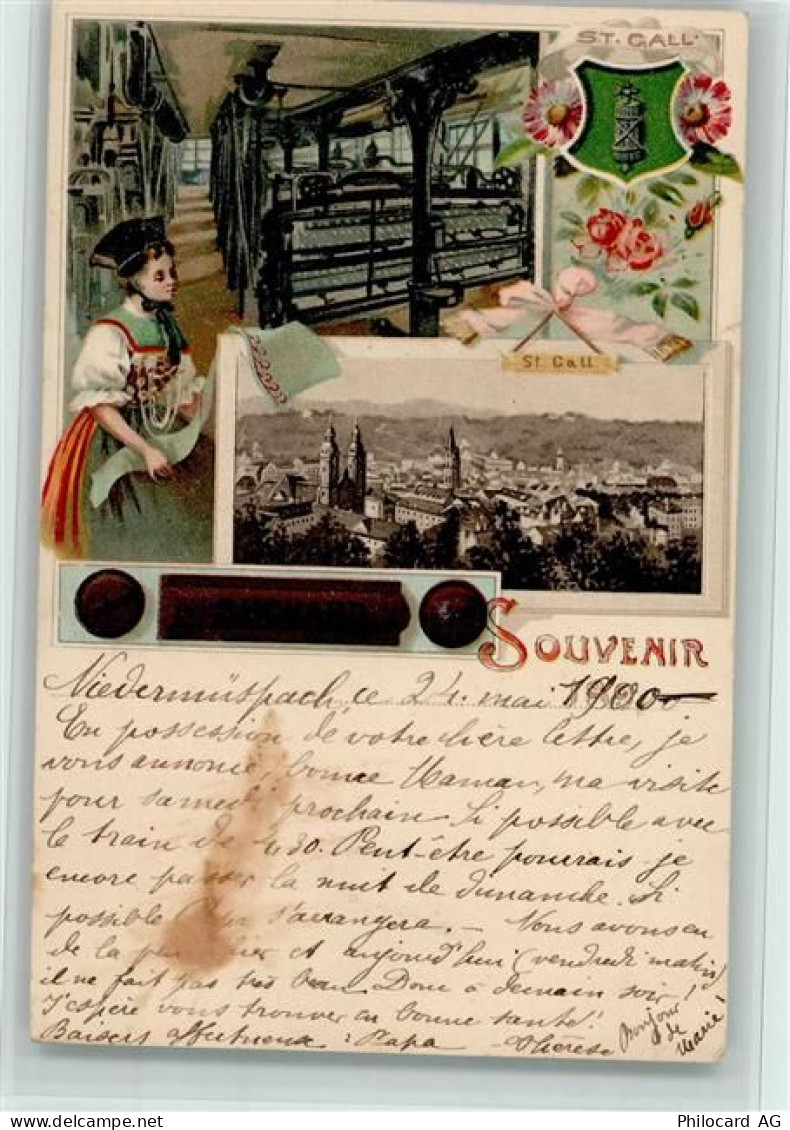 ST. GALL.
St. Gall
SOUVENIR
Niedermüspach, ce 24. mai 1900
En possession de votre chère lettre, je
vous annonce, bonne Maman, ma visite
pour samedi prochain. Si possible avec
le train de 4 30. Peut-être pourrais-je
encore passer la nuit de dimanche. Si
possible s'arrangera. — Nous avons eu
de la pluie hier et aujourd'hui (vendredi matin)
il ne fait pas très beau. Donc à demain soir!
J'espère vous trouver en bonne santé!
Baisers affectueux : Papa Thérèse
Bonjour
de
Marie
Philocard AG